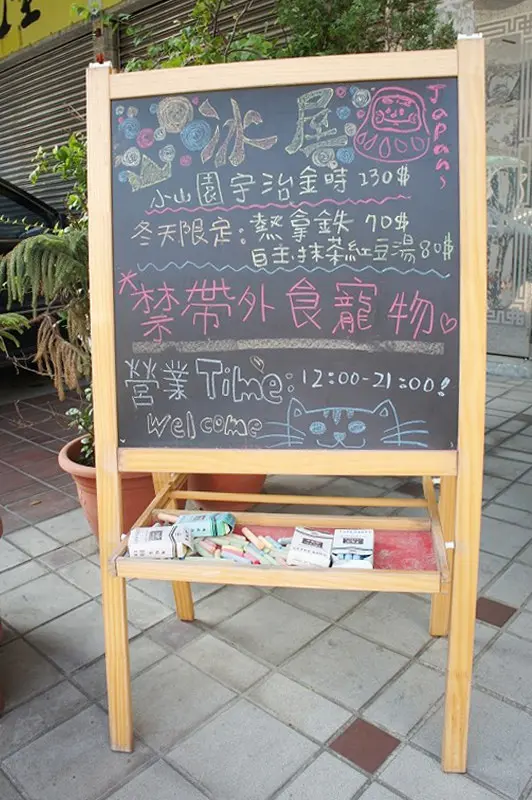 冰屋
Japan~
小山園宇治金時 130$
冬天限定：熱拿鉄 70$
自主抹茶紅豆湯 80$
禁帶外食寵物
營業Time：12:00-21:00!
welcome